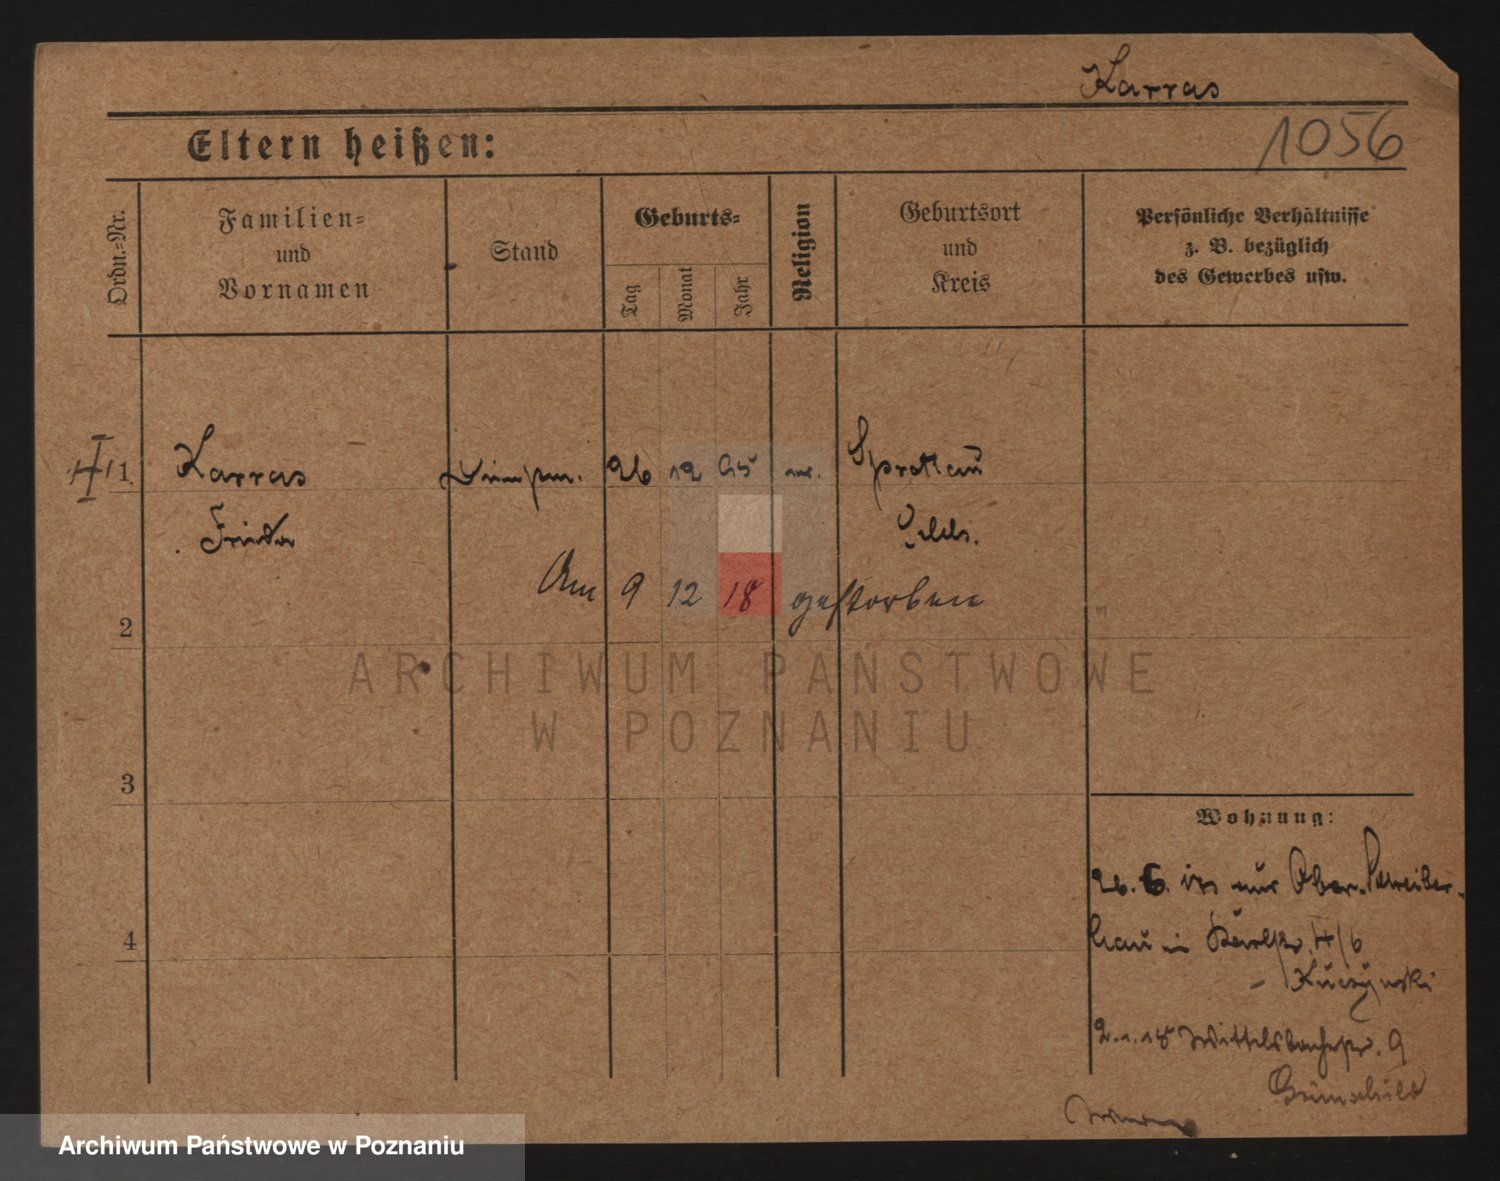 Karras
1056
Eltern heißen:
Ordn.-Nr.
Familien-
und
Vornamen
Stand
Geburts-
Tag
Monat
Jahr
Religion
Geburtsort
und
Kreis
Persönliche Verhältnisse
z. B. bezüglich
des Gewerbes usw.
1 Karras 26 12 95 Sprottau
Frieda
Am 9 12 18 gestorben
2
ARCHIWUM PAŃSTWOWE
W POZNANIU
3
4
Wohnung:
26. 6. aus Ober-Schreiber-
hau in 4/6
Kuczynski
2.1.18 Wittelsbacherstr. 9
Grünschild
Archiwum Państwowe w Poznaniu